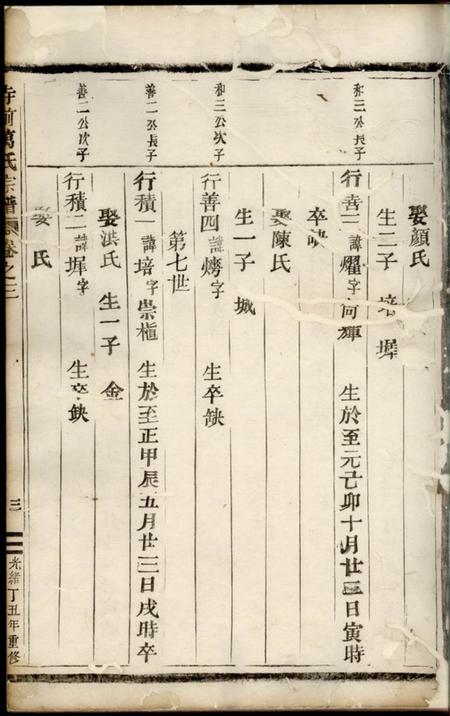 娶顏氏
生二子 培 墀
和三公長子
行善三 諱燿字向輝 生於至元己卯十月廿三日寅時
卒缺
娶陳氏
生一子 城
和三公次子
行善四 諱 字 生卒缺
第七世
善二公長子
行積一 諱培字崇植 生於至正甲辰五月廿三日戌時卒
娶洪氏 生一子 金
善二公次子
行積二 諱墀字 生卒缺
娶 氏
萬氏宗譜 卷之二
三
光緒丁丑年重修